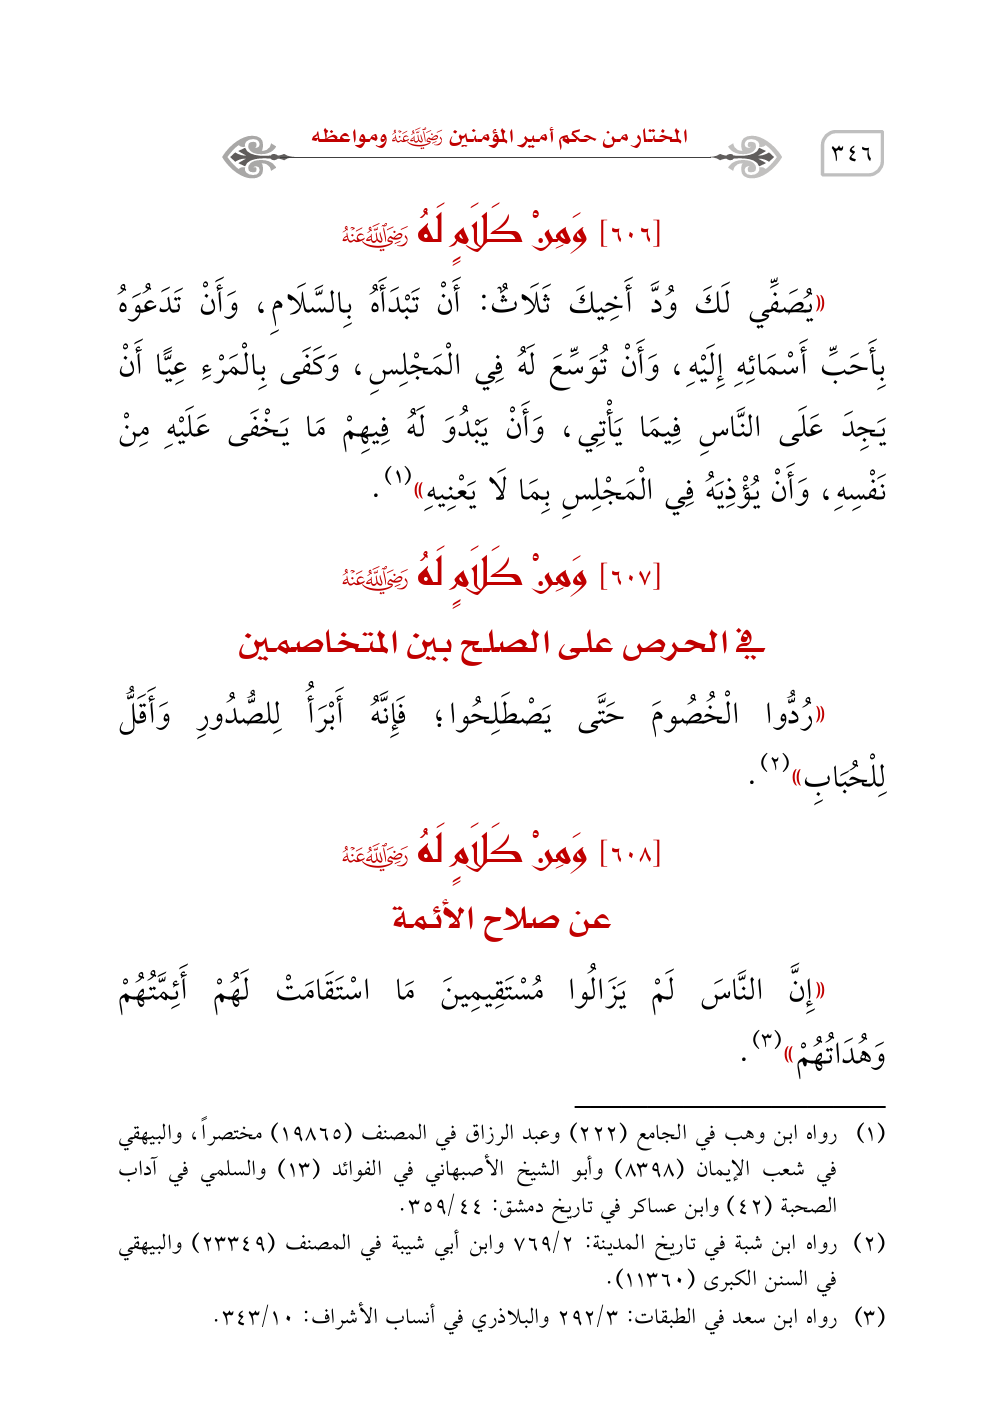 ٣٤٦
المختار من حكم أمير المؤمنين رَضِيَ اللَّهُ عَنْهُ ومواعظه
[٦٠٦] وَمِنْ كَلَامٍ لَهُ رَضِيَ اللَّهُ عَنْهُ
«يُصَفِّي لَكَ وُدَّ أَخِيكَ ثَلَاثٌ: أَنْ تَبْدَأَهُ بِالسَّلَامِ، وَأَنْ تَدَعُوَهُ
بِأَحَبِّ أَسْمَائِهِ إِلَيْهِ، وَأَنْ تُوَسِّعَ لَهُ فِي الْمَجْلِسِ، وَكَفَى بِالْمَرْءِ عِيًّا أَنْ
يَجِدَ عَلَى النَّاسِ فِيمَا يَأْتِي، وَأَنْ يَبْدُوَ لَهُ فِيهِمْ مَا يَخْفَى عَلَيْهِ مِنْ
نَفْسِهِ، وَأَنْ يُؤْذِيَهُ فِي الْمَجْلِسِ بِمَا لَا يَعْنِيهِ»(١).
[٦٠٧] وَمِنْ كَلَامٍ لَهُ رَضِيَ اللَّهُ عَنْهُ
في الحرص على الصلح بين المتخاصمين
«رُدُّوا الْخُصُومَ حَتَّى يَصْطَلِحُوا؛ فَإِنَّهُ أَبْرَأُ لِلصُّدُورِ وَأَقَلُّ
لِلْحُبَابِ»(٢).
[٦٠٨] وَمِنْ كَلَامٍ لَهُ رَضِيَ اللَّهُ عَنْهُ
عن صلاح الأئمة
«إِنَّ النَّاسَ لَمْ يَزَالُوا مُسْتَقِيمِينَ مَا اسْتَقَامَتْ لَهُمْ أَئِمَّتُهُمْ
وَهُدَاتُهُمْ»(٣).
(١) رواه ابن وهب في الجامع (٢٢٢) وعبد الرزاق في المصنف (١٩٨٦٥) مختصراً، والبيهقي
في شعب الإيمان (٨٣٩٨) وأبو الشيخ الأصبهاني في الفوائد (١٣) والسلمي في آداب
الصحبة (٤٢) وابن عساكر في تاريخ دمشق: ٣٥٩/٤٤.
(٢) رواه ابن شبة في تاريخ المدينة: ٧٦٩/٢ وابن أبي شيبة في المصنف (٢٣٣٤٩) والبيهقي
في السنن الكبرى (١١٣٦٠).
(٣) رواه ابن سعد في الطبقات: ٢٩٢/٣ والبلاذري في أنساب الأشراف: ٣٤٣/١٠.